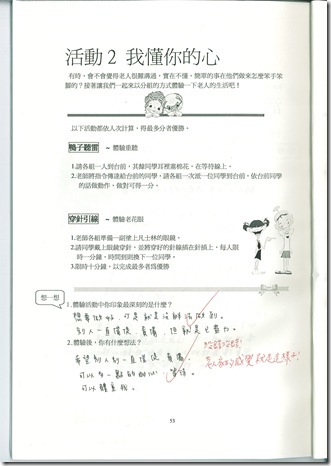 活動 2 我懂你的心
有時，會不會覺得老人很難溝通，實在不懂，簡單的事在他們做來怎麼笨手笨
腳的？接著讓我們一起來以分組的方式體驗一下老人的生活吧！
以下活動都依人次計算，得最多分者優勝。
鴨子聽雷 ~ 體驗重聽
1.請各組一人到台前，其餘同學耳裡塞棉花，在等待線上。
2.老師將指令傳達給台前的同學，請各組一次派一位同學到台前，依台前同學
的話做動作，做對可得一分。
穿針引線 ~ 體驗老花眼
1.老師各組準備一副塗上凡士林的眼鏡。
2.請同學戴上眼鏡穿針，並將穿好的針線插在針插上，每人限
時一分鐘，時間到則換下一位同學。
3.限時十分鐘，以完成最多者為優勝
想一想
1.體驗活動中你印象最深刻的是什麼？
想要做好，可是就是沒辦法做到。
別人一直催促、責備，但就是已盡力。
2.體驗後，你有什麼想法？
希望別人別一直催促、責備，
可以多一點的耐心 等待。
可以體重我。
老人家的感覺就是這樣
53